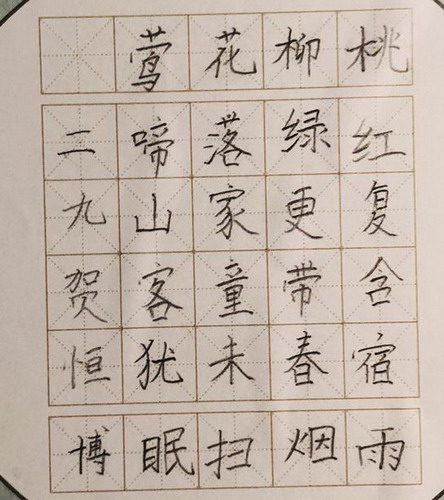 桃红复含宿雨
柳绿更带春烟
花落家童未扫
莺啼山客犹眠
二九贺恒博